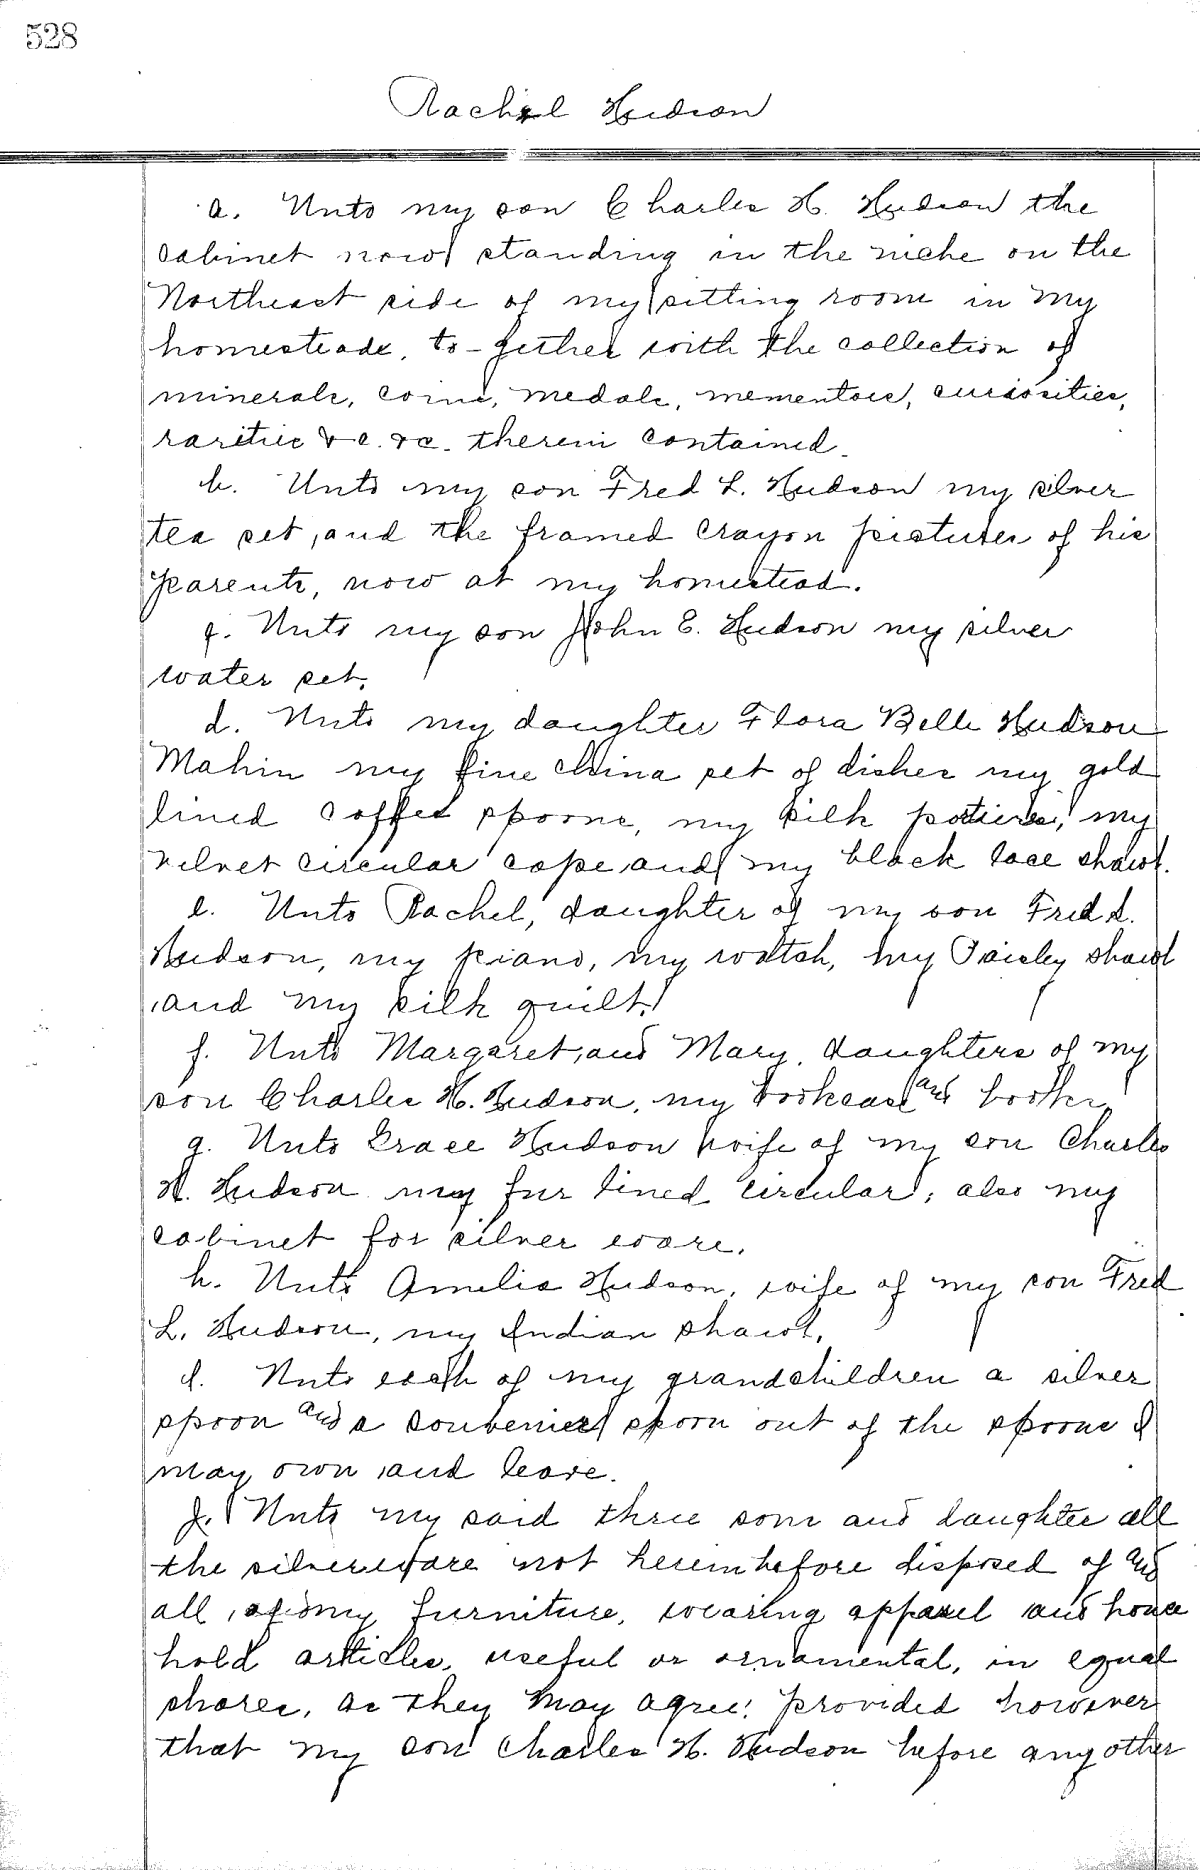 528
Rachel Hudson
a. Unto my son Charles H. Hudson the
cabinet now standing in the niche on the
Northeast side of my sitting room in my
homesteade, to-gether with the collection of
minerals, coins, medals, mementoes, curiosities,
rarities &c. &c. therein contained.
b. Unto my son Fred L. Hudson my silver
tea set, and the framed crayon pictures of his
parents, now at my homestead.
c. Unto my son John E. Hudson my silver
water set.
d. Unto my daughter Flora Belle Hudson
Mahin my fine china set of dishes my gold
lined coffee spoons, my silk my
velvet circular cape and my black lace shawl.
e. Unto Rachel, daughter of my son Fred L.
Hudson, my piano, my watch, my Paisley shawl
and my silk quilt.
f. Unto Margaret and Mary, daughters of my
son Charles H. Hudson, my bookcase and books.
g. Unto Grace Hudson wife of my son Charles
H. Hudson my fur lined circular; also my
cabinet for silver ware.
h. Unto Amelia Hudson, wife of my son Fred
L. Hudson, my Indian shawl.
i. Unto each of my grandchildren a silver
spoon and a souvenier spoon out of the spoons I
may own and leave.
j. Unto my said three sons and daughter all
the silverware not hereinbefore disposed of and
all of my furniture, wearing apparel and house
hold articles, useful or ornamental, in equal
shares, as they may agree: provided however
that my son Charles H. Hudson before any other